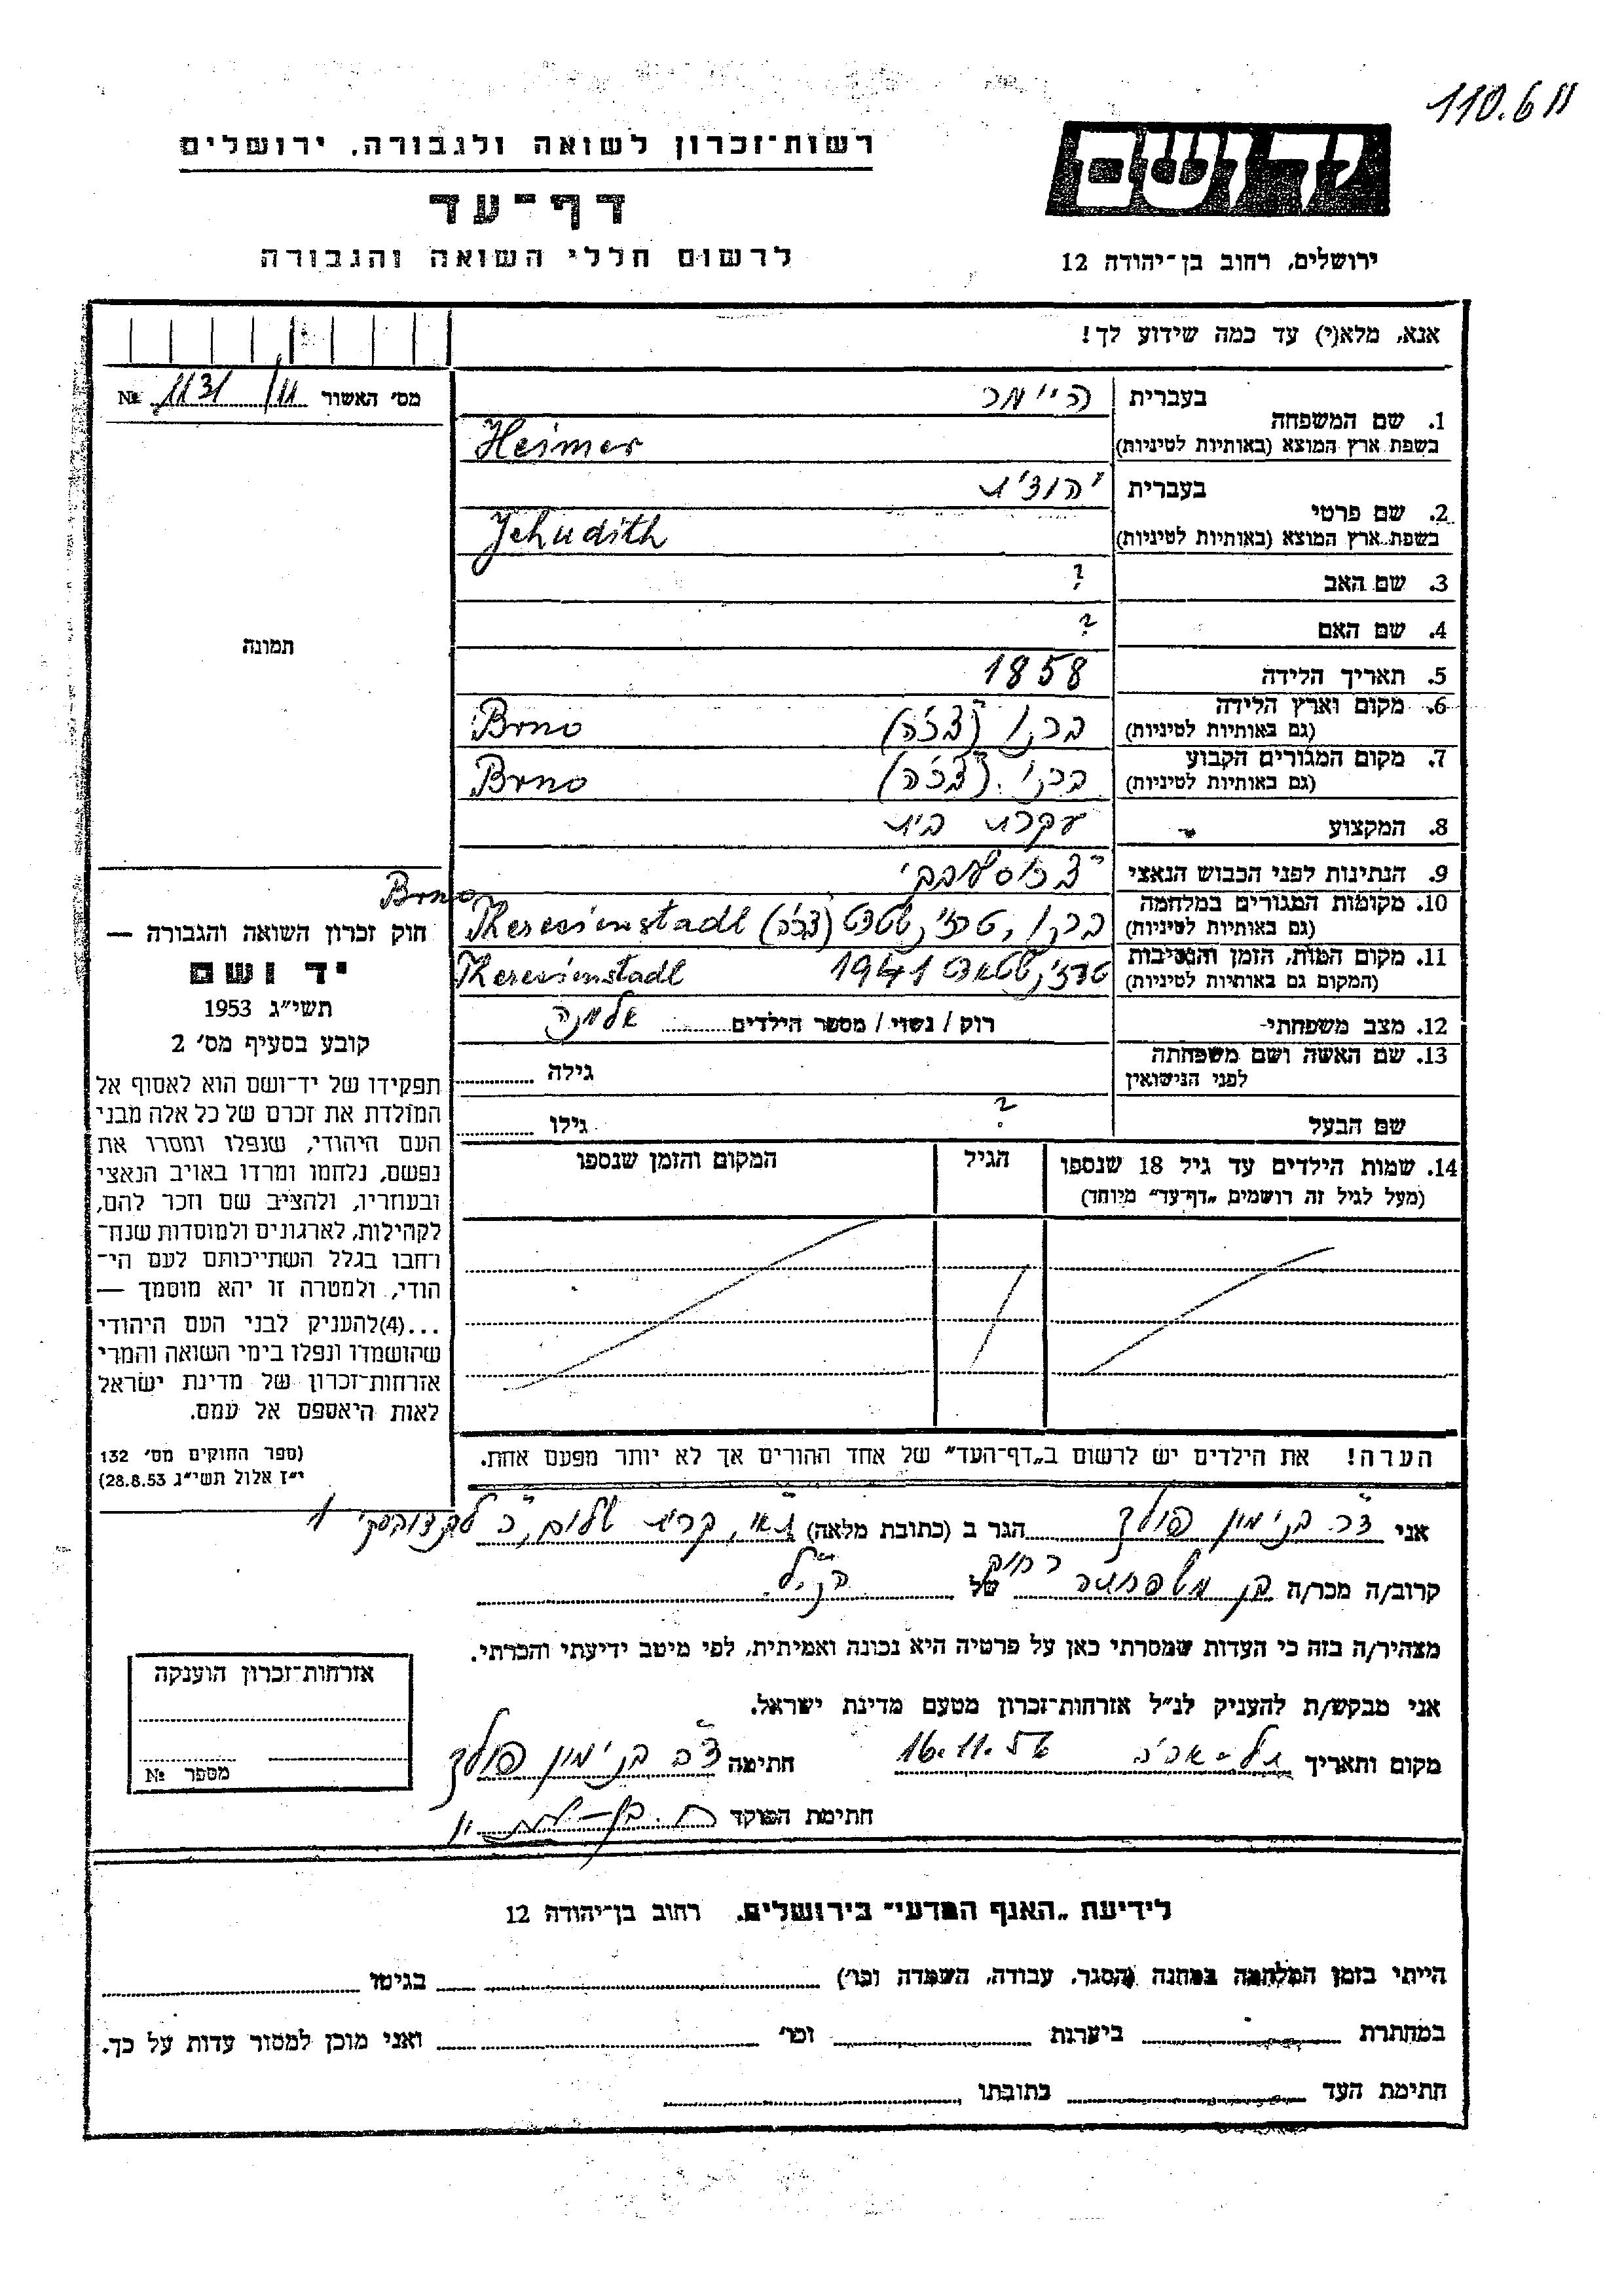 110.6 11
יד ושם
רשות־זכרון לשואה ולגבורה, ירושלים
דף־עד
לרשום חללי השואה והגבורה
ירושלים, רחוב בן־יהודה 12
אנא, מלא(י) עד כמה שידוע לך!
מס׳ האשור 1131/11 №
1. שם המשפחה בעברית היימר
בשפת ארץ המוצא (באותיות לטיניות) Heimer
2. שם פרטי בעברית יהודית
בשפת ארץ המוצא (באותיות לטיניות) Jehudith
3. שם האב ?
4. שם האם ?
5. תאריך הלידה 1858
6. מקום וארץ הלידה ברנו (צ׳כיה) Brno
(גם באותיות לטיניות)
7. מקום המגורים הקבוע ברנו (צ׳כיה) Brno
(גם באותיות לטיניות)
8. המקצוע עקרת בית
9. הנתינות לפני הכבוש הנאצי
10. מקומות המגורים במלחמה Brno
(גם באותיות לטיניות) ברנו, Theresienstadt
11. מקום המות, הזמן והנסיבות 1941 Theresienstadt
(המקום גם באותיות לטיניות)
12. מצב משפחתי־ רוק / נשוי / מספר הילדים אלמנה
13. שם האשה ושם משפחתה
לפני הנישואין גילה
שם הבעל ? גילו
14. שמות הילדים עד גיל 18 שנספו הגיל המקום והזמן שנספו
(מעל לגיל זה רושמים „דף־עד״ מיוחד)
הערה! את הילדים יש לרשום ב„דף־העד״ של אחד ההורים אך לא יותר מפעם אחת.
תמונה
חוק זכרון השואה והגבורה —
יד ושם
תשי״ג 1953
קובע בסעיף מס׳ 2
תפקידו של יד־ושם הוא לאסוף אל
המולדת את זכרם של כל אלה מבני
העם היהודי, שנפלו ומסרו את
נפשם, נלחמו ומרדו באויב הנאצי
ובעוזריו, ולהציב שם וזכר להם,
לקהילות, לארגונים ולמוסדות שנח־
רחבו בגלל השתייכותם לעם הי־
הודי, ולמטרה זו יהא מוסמך —
...(4)להעניק לבני העם היהודי
שהושמדו ונפלו בימי השואה והמרי
אזרחות־זכרון של מדינת ישראל
לאות היאספם אל עמם.
(ספר החוקים מס׳ 132
י״ז אלול תשי״ג 28.8.53)
אני ד״ר בנימין פולק הגר ב (כתובת מלאה) ת״א, קרית שלום,
קרוב/ה מכר/ה בן משפחה רחוק של הנ״ל
מצהיר/ה בזה כי העדות שמסרתי כאן על פרטיה היא נכונה ואמיתית, לפי מיטב ידיעתי והכרתי.
אני מבקש/ת להעניק לנ״ל אזרחות־זכרון מטעם מדינת ישראל.
מקום ותאריך תל-אביב 16.11.56 חתימה ד״ר בנימין פולק
חתימת הפוקד
אזרחות־זכרון הוענקה
מספר №
לידיעת „האגף המדעי״ בירושלים, רחוב בן־יהודה 12
הייתי בזמן המלחמה במחנה (הסגר, עבודה, השמדה וכו׳) בגיטו
במחתרת ביערות וכו׳ ואני מוכן למסור עדות על כך.
חתימת העד כתובתו